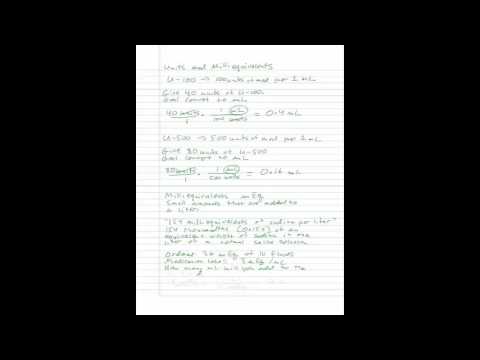 Units and Milliequivalents
U-100 → 100 units of med per 1 mL
Give 40 units of U-100
Goal convert to mL
40 units / 1 · 1 mL / 100 units = 0.4 mL
U-500 → 500 units of med per 1 mL
Give 80 units of U-500
Goal convert to mL
80 units / 1 · 1 mL / 500 units = 0.16 mL
Milliequivalents mEq
Small amounts that are added to
a liter
"154 milliequivalents of sodium per liter"
154 thousandths (0.154) of an
equivalent weight of sodium in one
liter of a normal saline solution
Ordered 36 mEq of IV fluids
Medication label: 3 mEq/mL
How many mL will you add to the